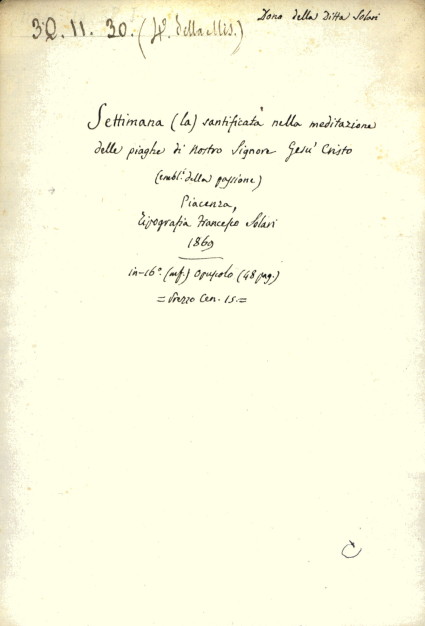 Dono della Ditta Solari
3Q.11.30. (4°. della Mis.)
Settimana (la) santificata nella meditazione
delle piaghe di Nostro Signore Gesu' Cristo
(embl.i della passione)
Piacenza,
Tipografia Francesco Solari
1869
in-16°. (inf.) Opuscolo (48 pag.)
= Prezzo Cen. 15. =